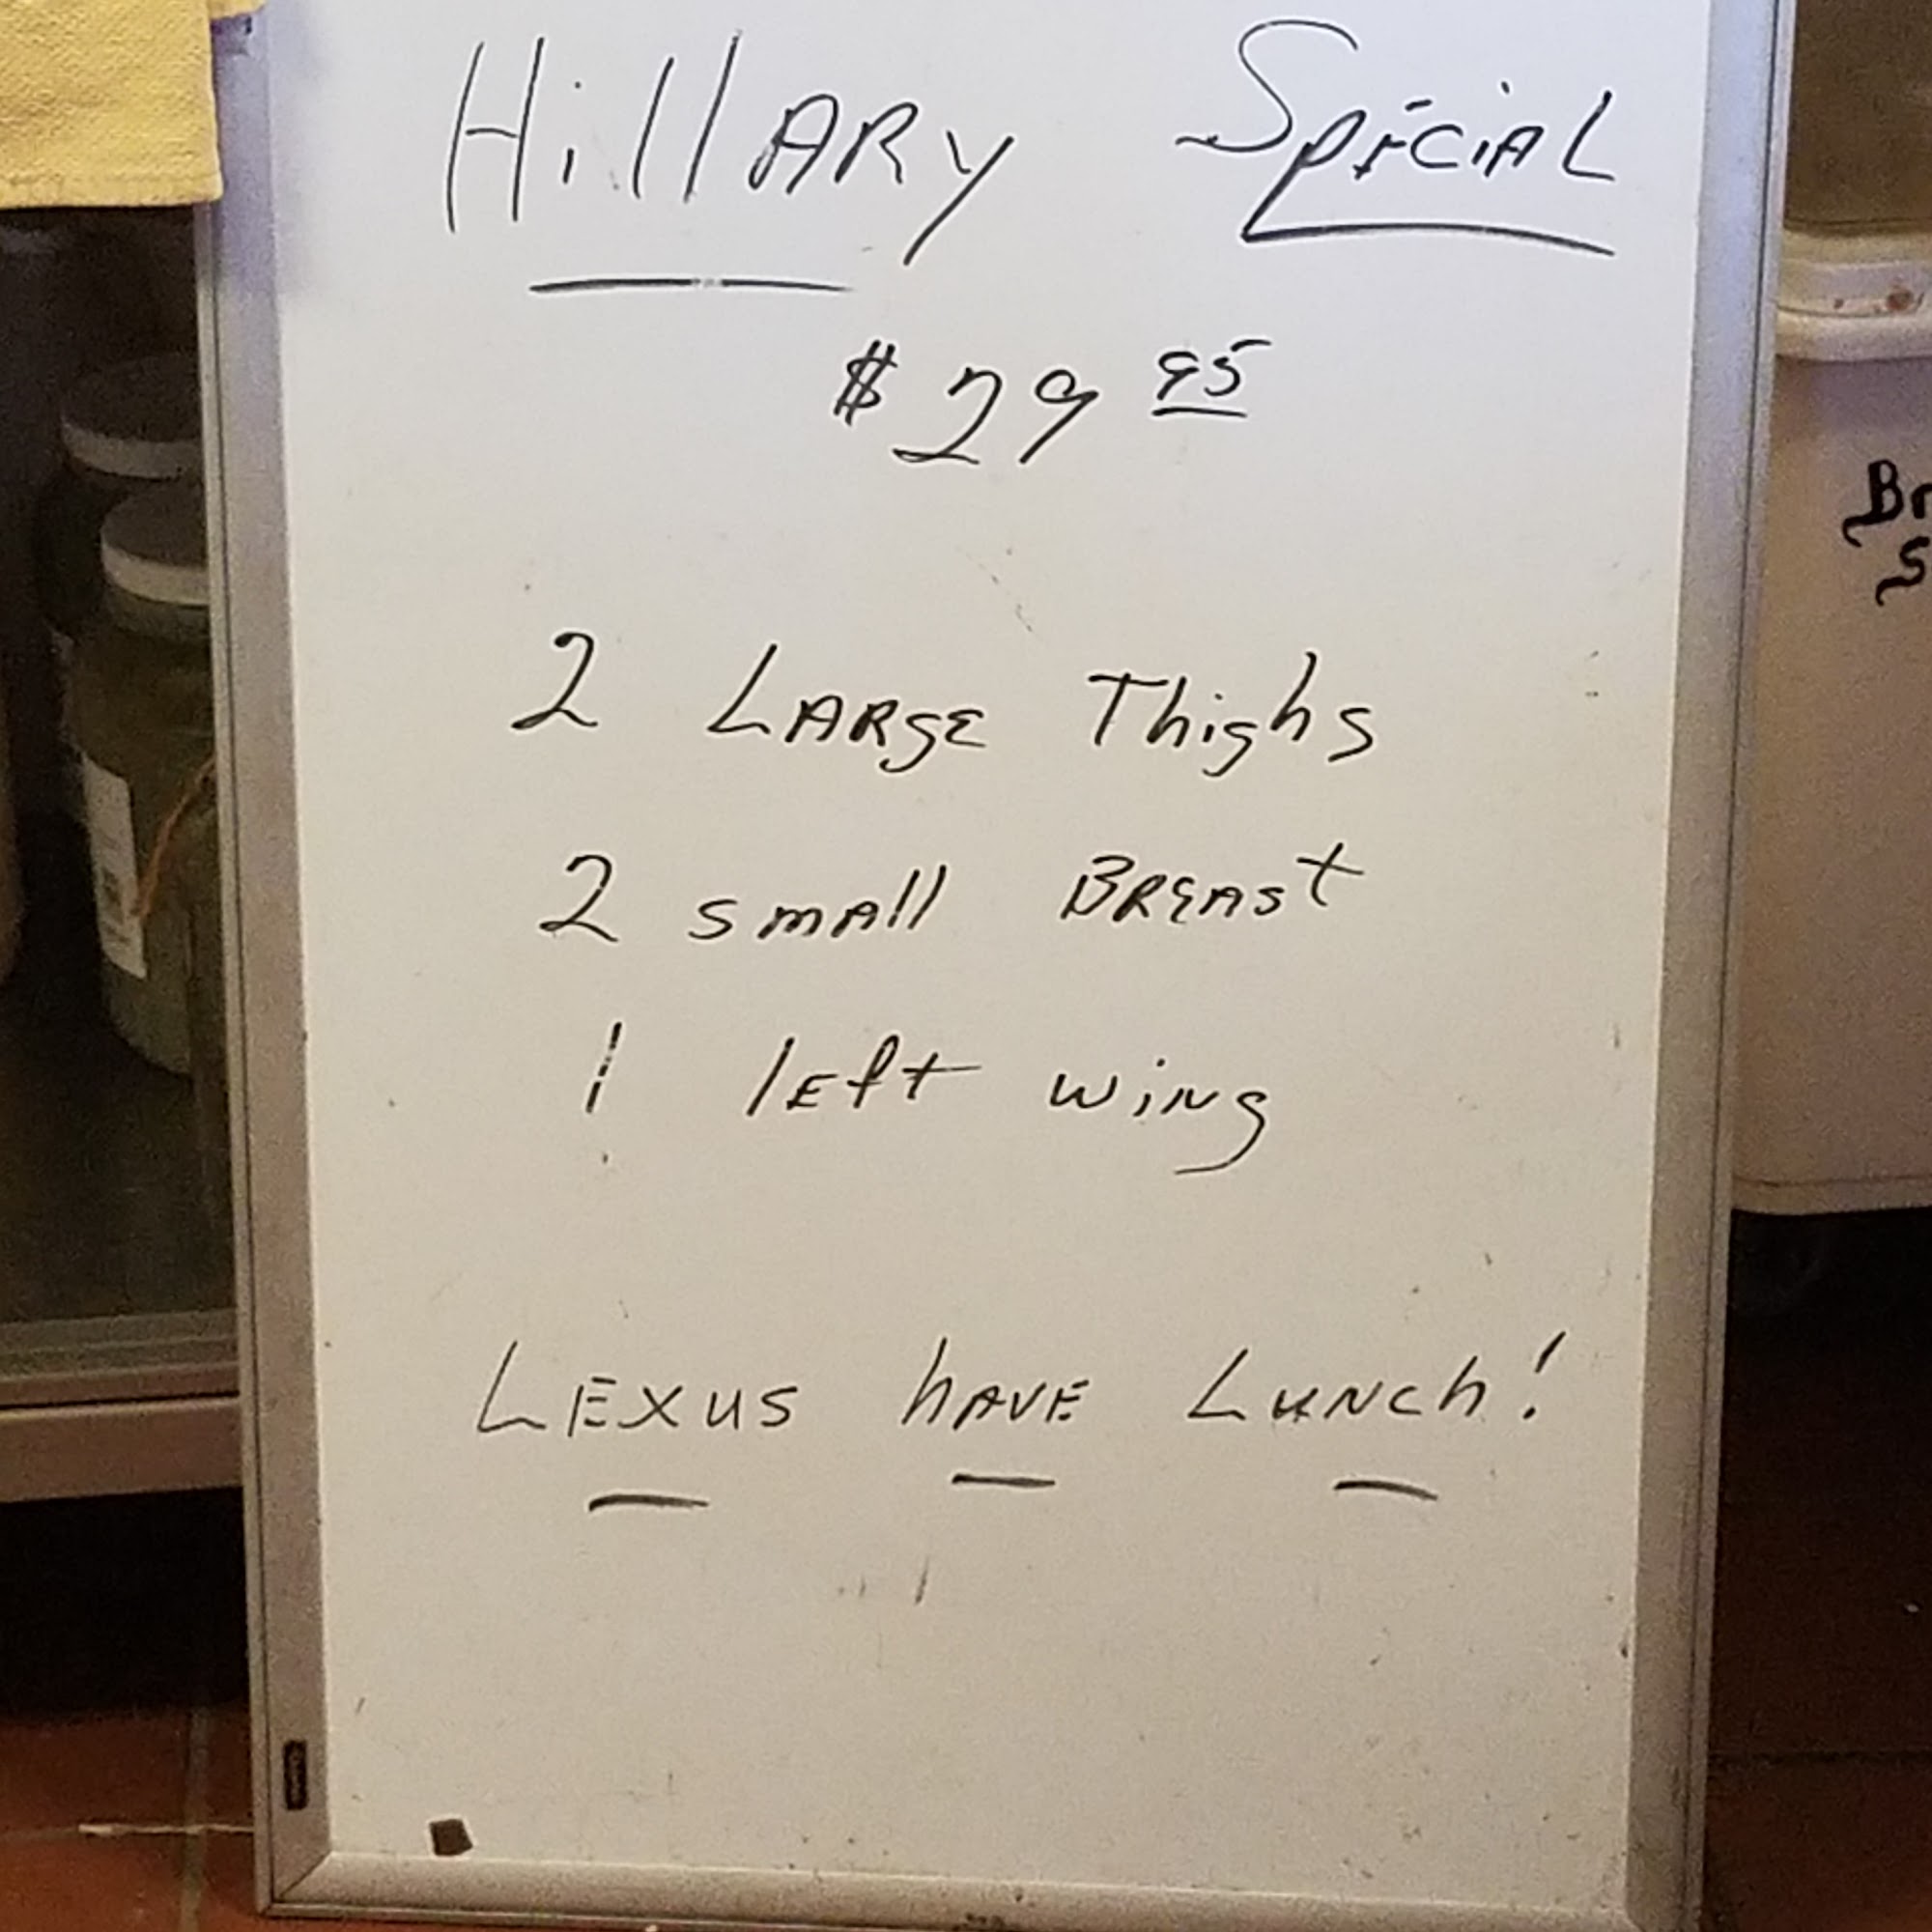 HillARy SPECiAL
$ 29 95
2 LARgE Thighs
2 smAll BREAst
1 lEft wiNg
LEXUS hAVE LUNCh!
Br
S